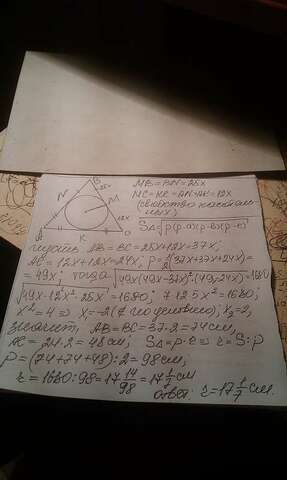 B
25x
N
M
12x
A
K
C
MB=BN=25x
NC=KC=AN=AK=12x
(свойство касатель-
ных)
S∆=√p(p-a)(p-b)(p-c)
AB=BC=25x+12x=37x;
AC=12x+12x=24x; p=½(37x+37x+24x)=
=49x; тогда √49x(49x-37x)²·(49x-24x)=1680
√49x·12²x²·25x=1680; 7·12·5x²=1680;
x²=4 ⇒ x₁=-2(∉ по условию); x₂=2,
значит, AB=BC=37·2=74см,
AC=24·2=48см; S∆=p·r⇒r=S:p
p=(74+74+48):2=98см;
r=1680:98=17 14/98=17 1/7 см
ответ: r=17 1/7 см.